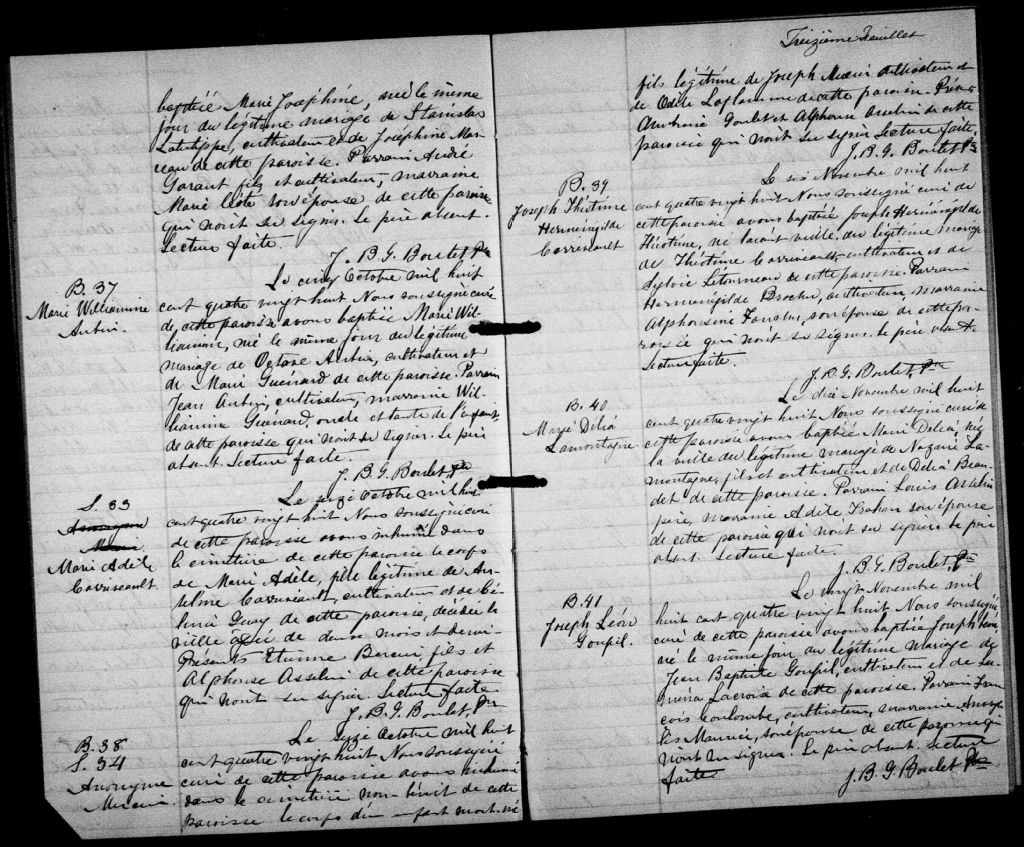 baptisé Marie Joséphine, née le même
jour du légitime mariage de Stanislas
Latulippe, cultivateur et de Joséphine Mar-
ceau de cette paroisse. Parrain André
Garant fils et cultivateur, marraine
Marie son épouse de cette paroisse
qui n'ont su signer. Le père absent.
Lecture faite.
J. B. G. Boulet Ptre
B. 37
Marie Williamine
Aubin.
Le cinq Octobre mil huit
cent quatre vingt huit Nous soussigné curé
de cette paroisse avons baptisé Marie Wil-
liamine, née le même jour du légitime
mariage de Octave Aubin, cultivateur et
de Marie Guénard de cette paroisse. Parrain
Jean Aubin, cultivateur, marraine Wil-
liamine Guénard, oncle et tante de l'enfant,
de cette paroisse qui n'ont su signer. Le père
absent. Lecture faite.
J. B. G. Boulet Ptre
S. 33
Anonyme
Marie Adèle
Carruseault.
Le seize Octobre mil huit
cent quatre vingt huit Nous soussigné curé
de cette paroisse avons inhumé dans
le cimetière de cette paroisse le corps
de Marie Adèle, fille légitime de An-
selme Carruseault, cultivateur et de Cé-
lina de cette paroisse, décédée la
veille agée de mois et demi.
Présents Etienne fils et
Alphonse Asselin de cette paroisse
qui n'ont su signer. Lecture faite
J. B. G. Boulet, Ptre
B. 38
S. 34
Anonyme
Mercier.
Le seize Octobre mil huit
cent quatre vingt huit Nous soussigné
curé de cette paroisse avons inhumé
dans le cimetière non-bénit de cette
paroisse le corps d'un enfant mort-né
Treizième Feuillet
fils légitime de Joseph Mercier cultivateur et
de Odile Laflamme de cette paroisse. Présents
Ambroise Goulet et Alphonse Asselin de cette
paroisse qui n'ont su signer Lecture faite,
J. B. G. Boulet Ptre
B. 39
Joseph Théotime
Herménégilde
Carruseault
Le six Novembre mil huit
cent quatre vingt huit Nous soussigné curé de
cette paroisse avons baptisé Joseph Herménégilde
Théotime, né l'avant veille du légitime mariage
de Théotime Carruseault cultivateur et de
Sylvie Létourneau de cette paroisse. Parrain
Herménégilde Brochu, cultivateur, marraine
Alphonsine son épouse de cette pa-
roisse qui n'ont su signer. Le père
Lecture faite.
J. B. G. Boulet, Ptre
B. 40
Marie Délia
Lamontagne.
Le dix Novembre mil huit
cent quatre vingt huit Nous soussigné curé de
cette paroisse avons baptisé Marie Délia, née
la veille du légitime mariage de Nazaire La-
montagne, fils et cultivateur et de Délia Beau-
det de cette paroisse. Parrain Louis Asselin
père, marraine Adèle Trahan son épouse
de cette paroisse qui n'ont su signer. Le père
absent. Lecture faite.
J. B. G. Boulet, Ptre
B. 41
Joseph Léon
Goupil.
Le vingt Novembre mil
huit cent quatre vingt huit Nous soussigné
curé de cette paroisse avons baptisé Joseph Léon
né le même jour du légitime mariage de
Jean Baptiste Goupil, cultivateur et de
Lacroix de cette paroisse. Parrain Fran-
cois Coulombe, cultivateur, marraine
son épouse de cette paroisse qui
n'ont su signer. Le père absent. Lecture
faite
J. B. G. Boulet Ptre